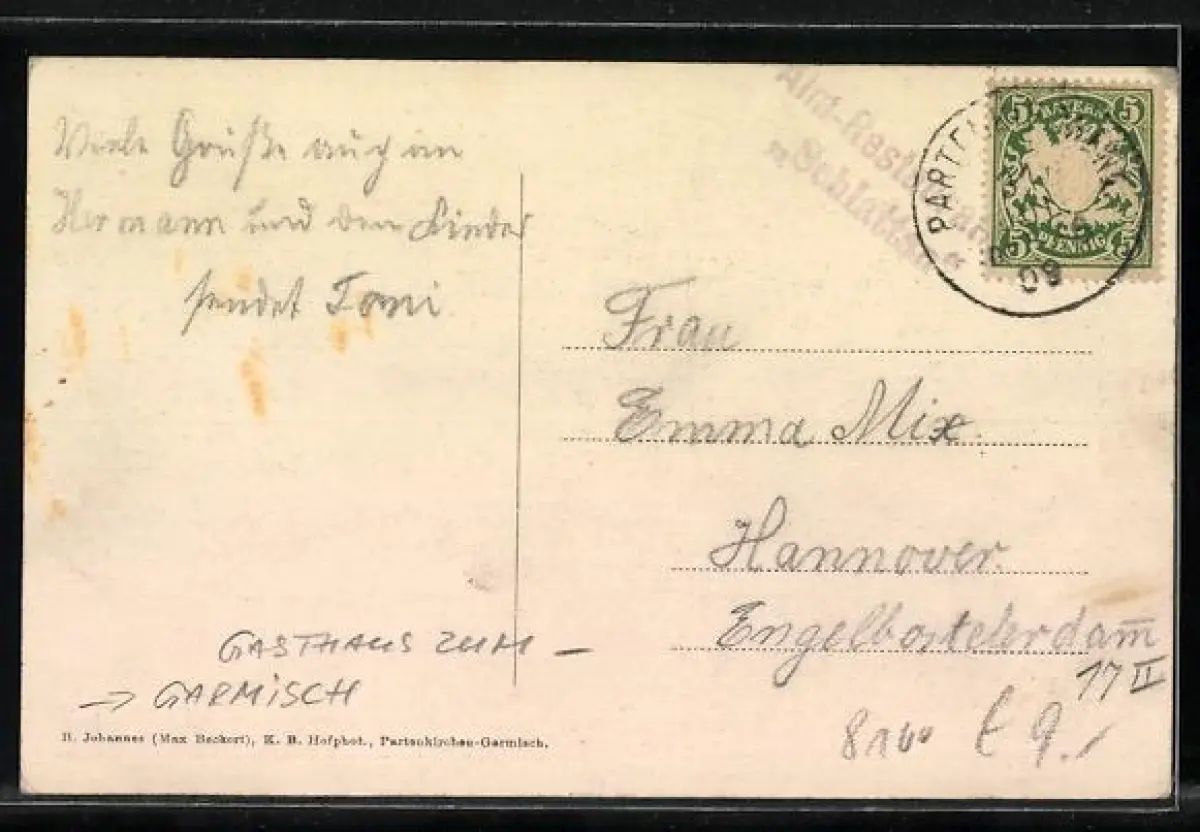 Viele Grüße auch an
Hermann und den Kinder
sendet Tomi
GASTHAUS ZUM —
→ GARMISCH
B. Johannes (Max Beckert), K. B. Hofphot., Partenkirchen-Garmisch.
„Schlattan“
5 BAYERN 5
5 PFENNIG 5
09
Frau
Emma Mix.
Hannover.
Engelbostelerdam̅
17 II